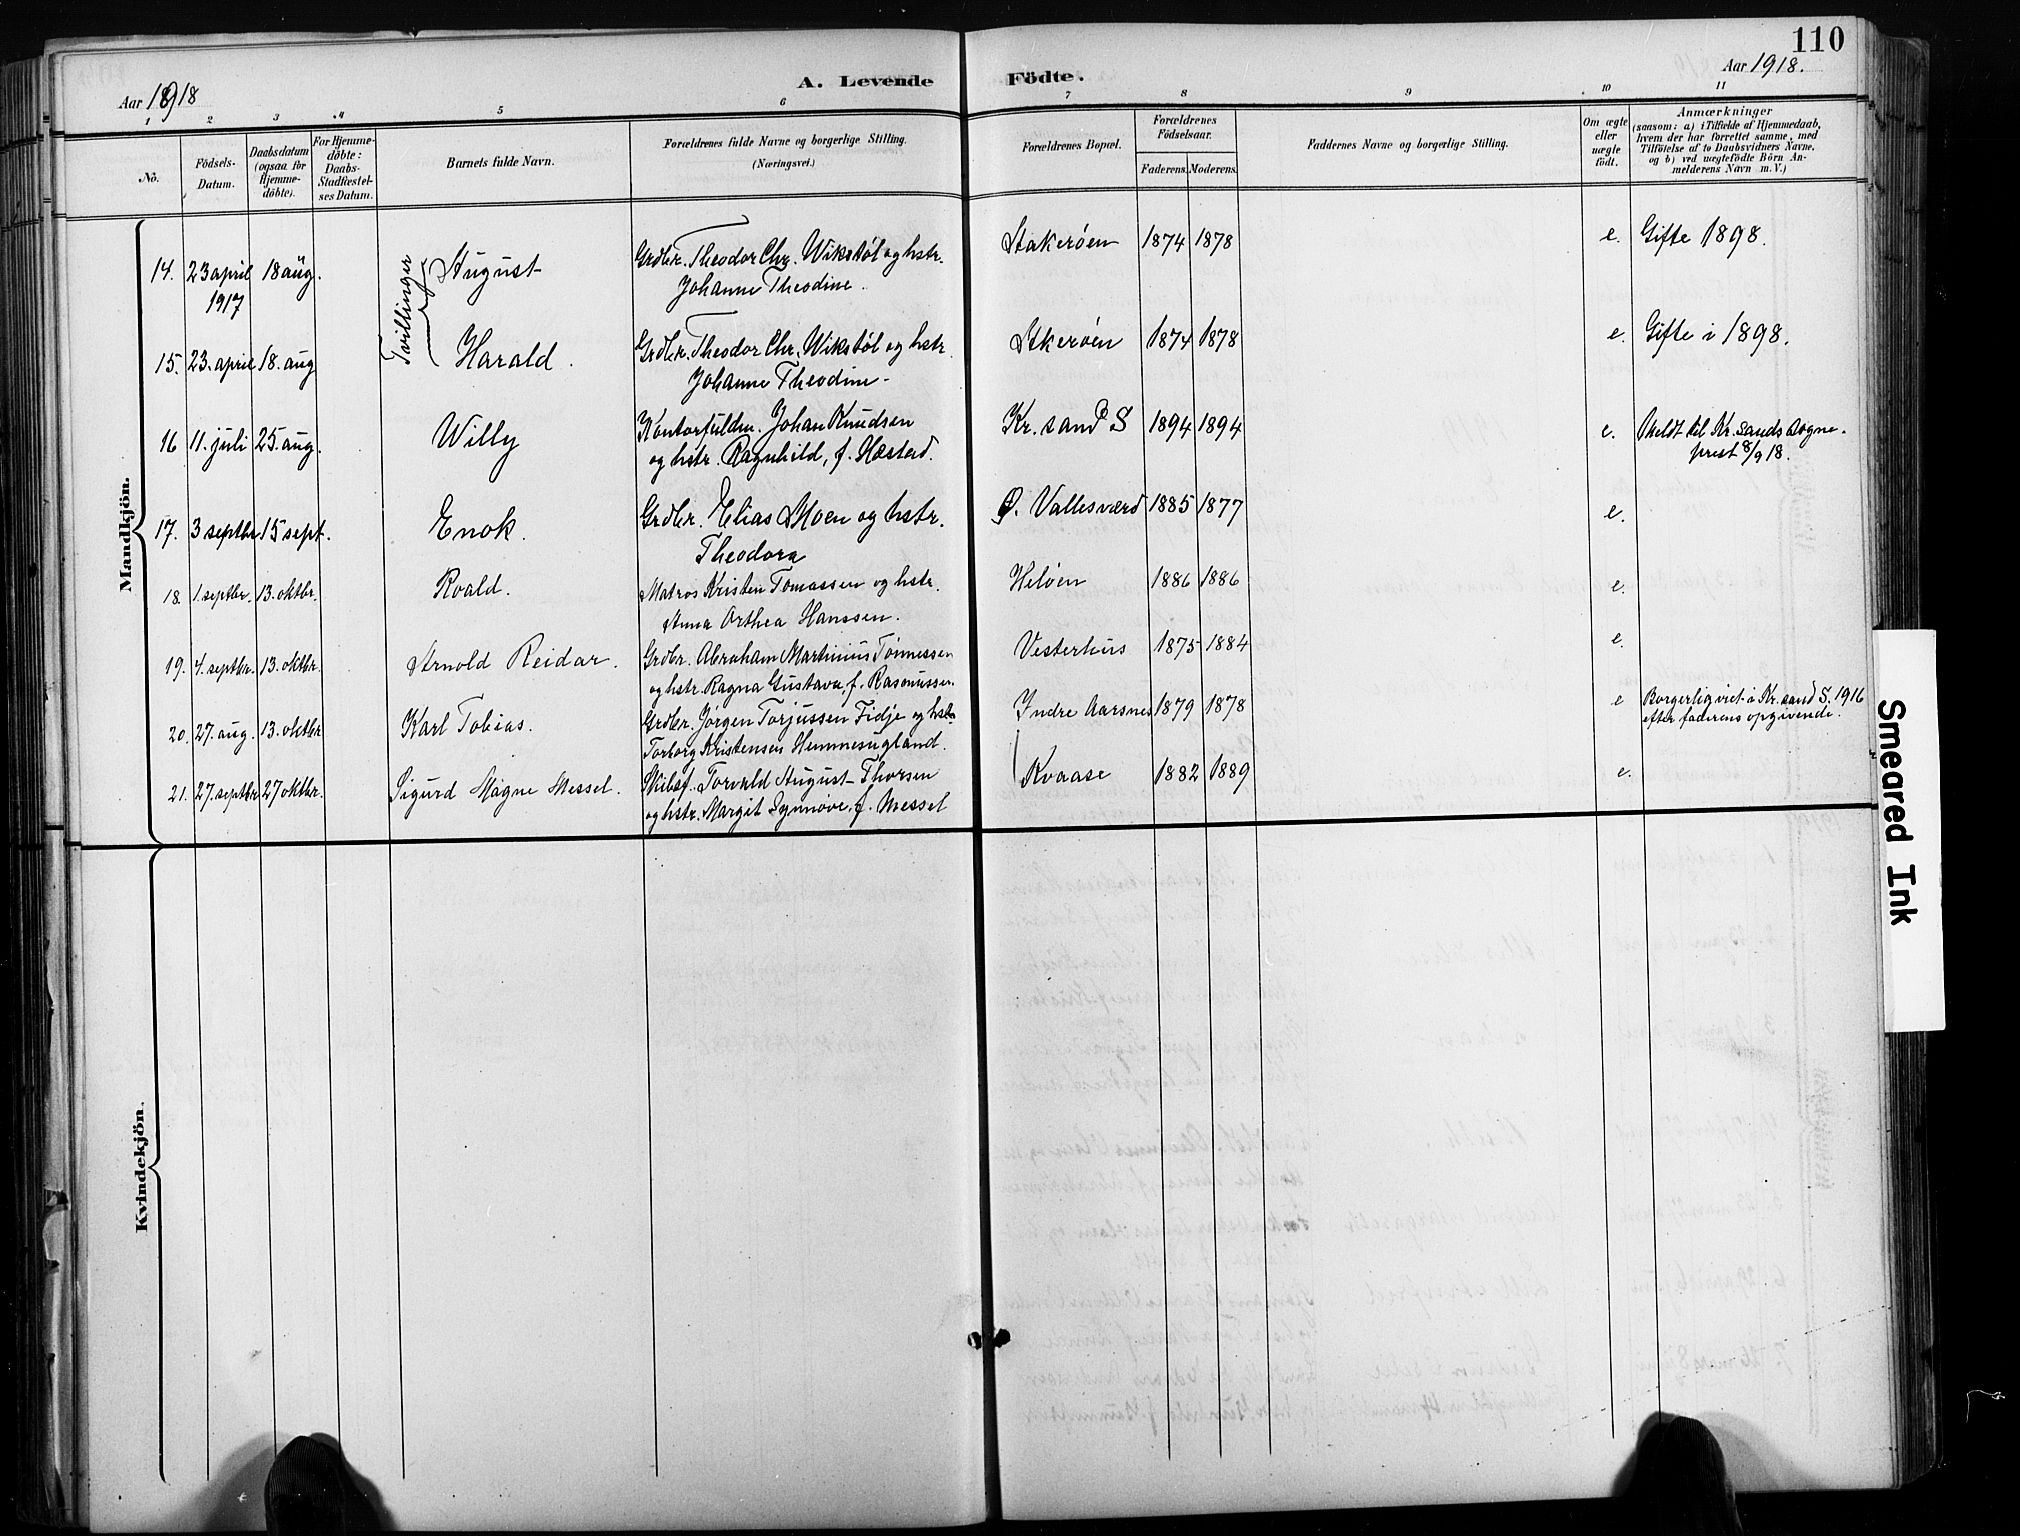 110
Aar 1918
A. Levende Födte.
Aar 1918.
1 2 3 4 5 6 7 8 9 10 11
No.
Födsels-Datum.
Daabsdatum (ogsaa for Hjemme-döbte).
For Hjemme-döbte: Daabs-Stadfæstel-ses Datum.
Barnets fulde Navn.
Forældrenes fulde Navne og borgerlige Stilling. (Næringsvei.)
Forældrenes Bopæl.
Forældrenes Födselsaar.
Faderens. Moderens.
Faddernes Navne og borgerlige Stilling.
Om ægte eller uægte födt.
Anmærkninger
(saasom: a) i Tilfælde af Hjemmedaab, hvem der har forrettet samme, med Tilföielse af to Daabsvidners Navne, og b) ved uægtefödte Börn An-melderens Navn m. V.)
Mandkjön.
Tvillinger
14. 23 april 1917 18 aug. August Grdbr. Theodor Chr. Wikstøl og hstr. Johanne Theodine. Stakerøen 1874 1878 e. Gifte 1898.
15. 23. april 18. aug Harald. Grdbr. Theodor Chr. Wikstøl og hstr. Johanne Theodine Stkerøen 1874 1878 e. Gifte i 1898.
16 11. juli 25. aug. Willy Kontorfuldm. Johan Knudsen og hstr. Ragnhild, f. Hæstad. Kr.sand S 1894 1894 e. Meldt til Kr.sands Sogne-prest 8/9 18.
17. 3 septbr 15 sept. Enok. Grdbr. Elias Moen og hstr. Theodora Ø. Vallesværd 1885 1877 e.
18. 1. septbr. 13. oktbr. Roald. Matros Kristen Tomassen og hstr. Anna Orthea Hanssen. Heløen 1886 1886 e.
19. 4. septbr. 13. oktbr. Arnold Reidar. Grdbr. Abraham Martinius Tønnessen og hstr. Ragna Gustava, f. Rasmussen. Vesterhus 1875 1884 e
20. 27. aug. 13. oktbr Karl Tobias. Grdbr. Jørgen Torjussen Fidje og hstr. Torborg Kristensen Hemmesugland. Indre Aarsnes 1879 1878 e Borgerlig viet i Kr.sand S. 1916 efter faderens opgivende.
21. 27. septbr 27 oktbr. Sigurd Magne Messel. Skibsf. Torvald August Thorsen og hstr. Margit Synnøve, f. Messel Kvaase 1882 1889 e.
Kvindekjön.
Smeared Ink